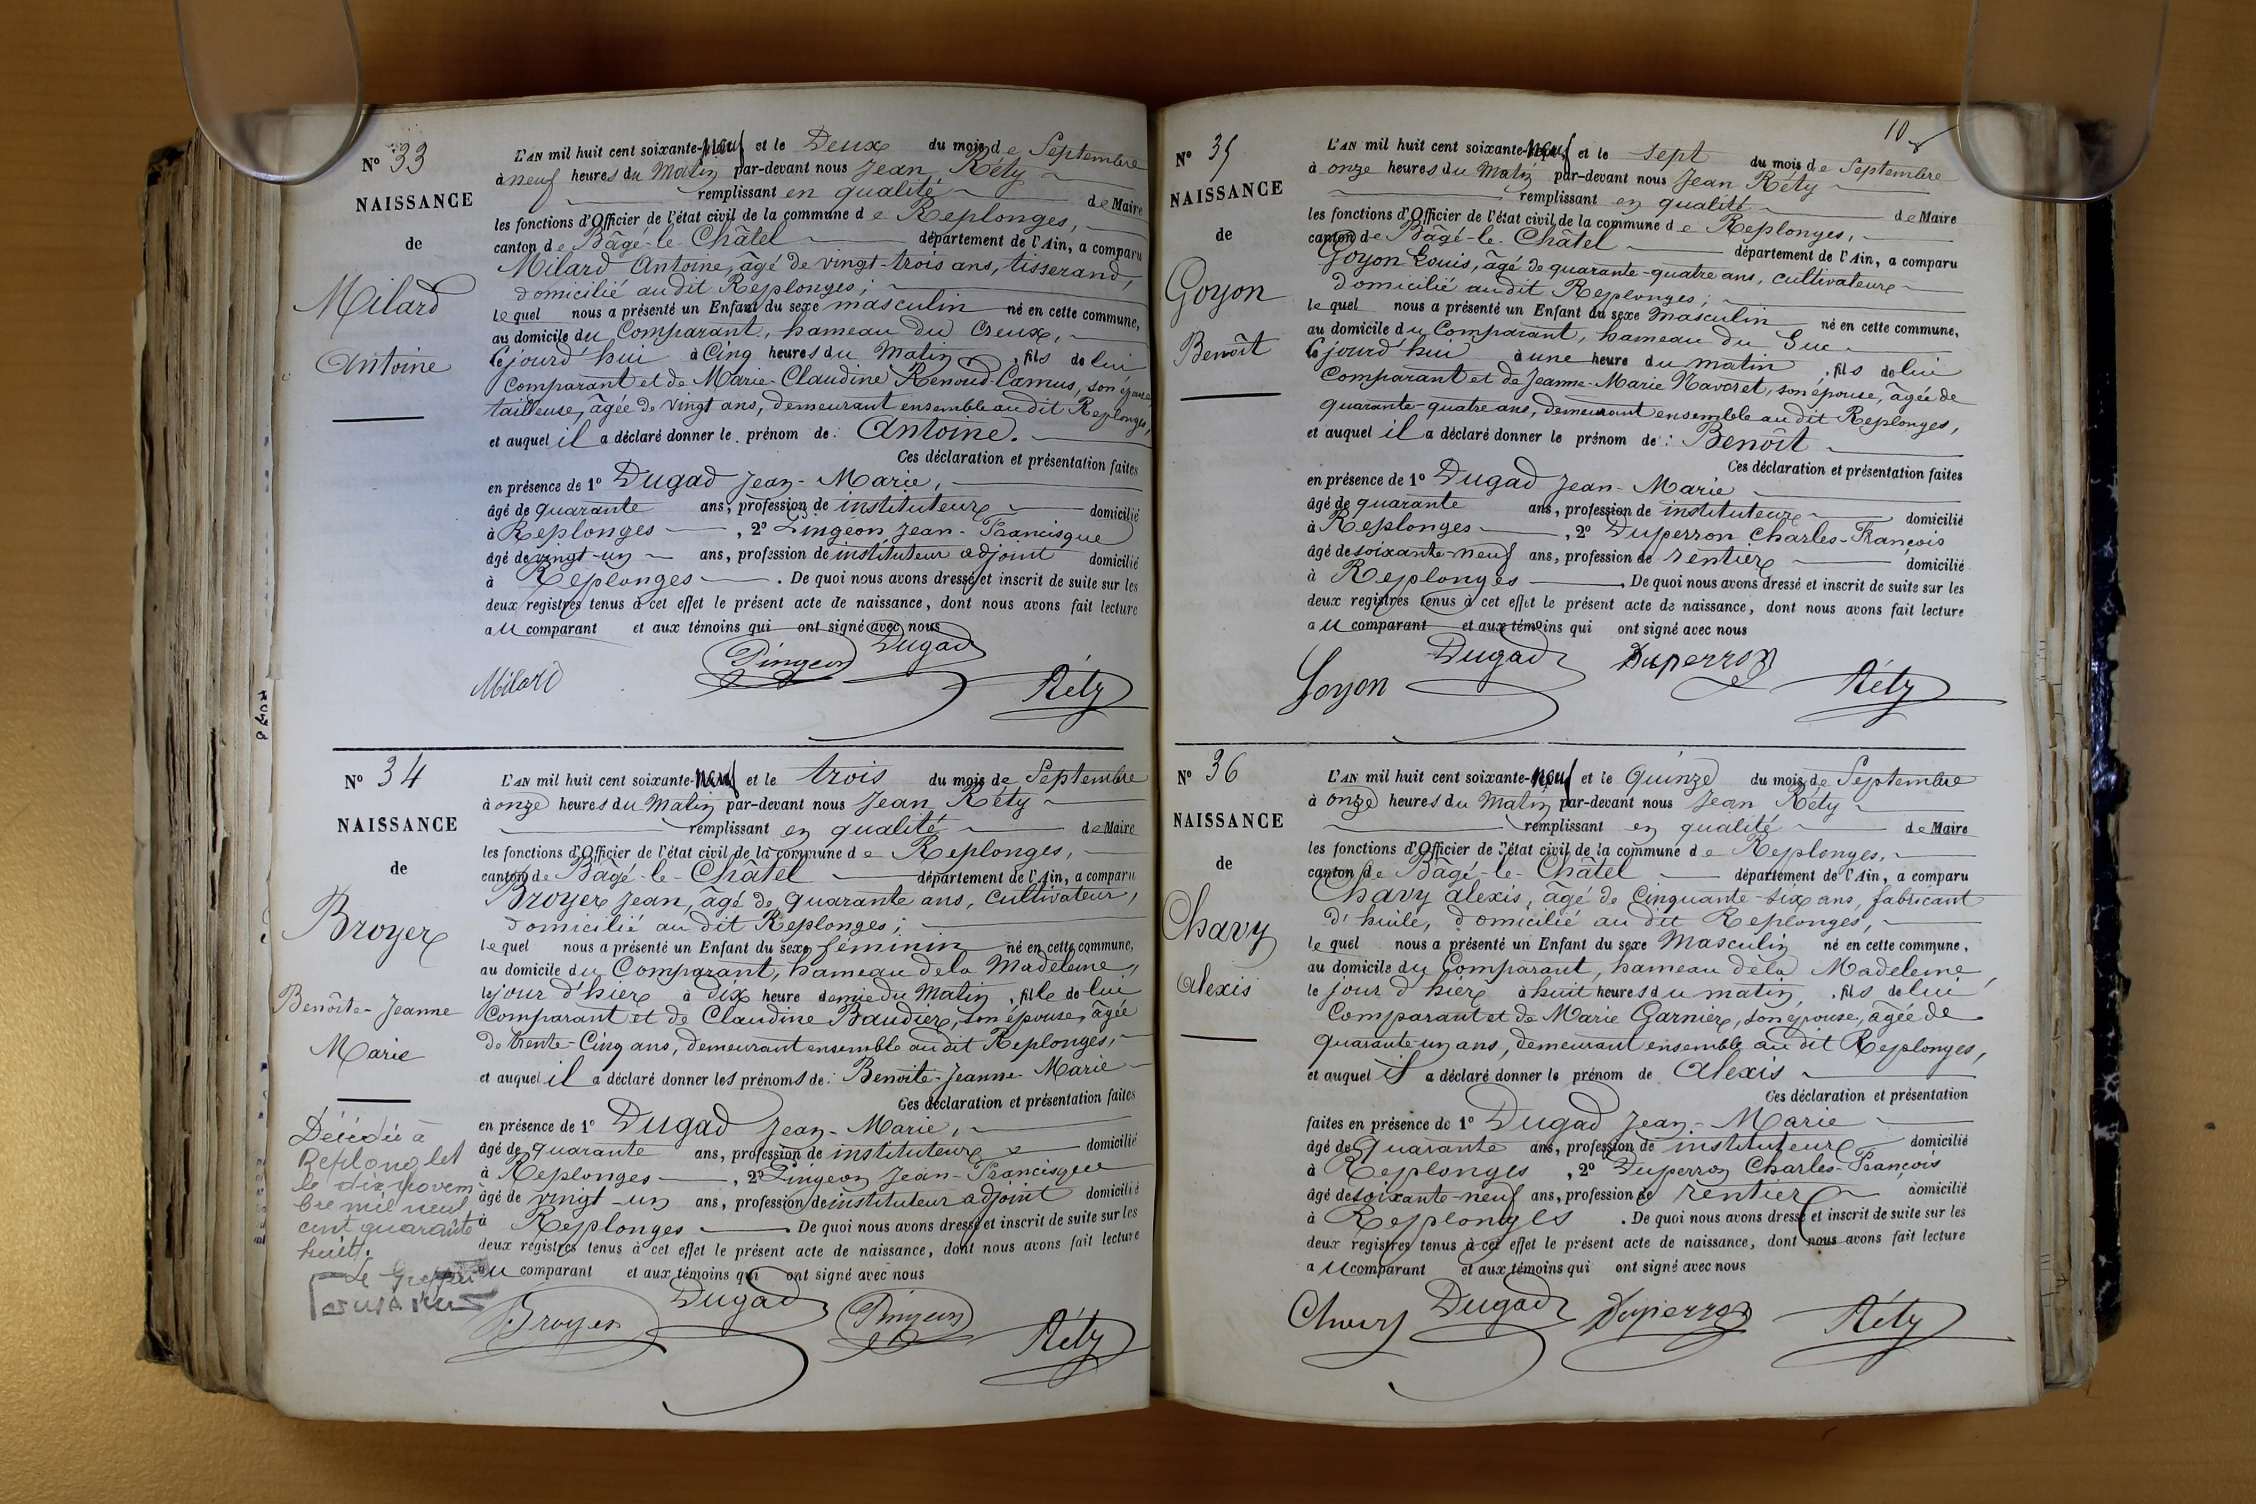 N° 33
NAISSANCE
de
Milard
Antoine
L'AN mil huit cent soixante-neuf et le Deux du mois de Septembre
à neuf heures du Matin par-devant nous Jean Réty
remplissant en qualité de Maire
les fonctions d'Officier de l'état civil de la commune de Replonges,
canton de Bâgé-le-Châtel département de l'Ain, a comparu
Milard Antoine, âgé de vingt-trois ans, tisserand,
domicilié au dit Replonges;
lequel nous a présenté un Enfant du sexe masculin né en cette commune,
au domicile du Comparant, hameau du Creux,
ce jourd'hui à Cinq heures du Matin, fils de lui
Comparant et de Marie-Claudine Renoud-Camus, son épouse
tailleuse, âgée de vingt ans, demeurant ensemble au dit Replonges,
et auquel il a déclaré donner le prénom de: Antoine.
Ces déclaration et présentation faites
en présence de 1° Dugad Jean-Marie,
âgé de quarante ans, profession de instituteur domicilié
à Replonges, 2° Pingeon Jean-Francisque
âgé de vingt-un ans, profession de instituteur adjoint domicilié
à Replonges. De quoi nous avons dressé et inscrit de suite sur les
deux registres tenus à cet effet le présent acte de naissance, dont nous avons fait lecture
au comparant et aux témoins qui ont signé avec nous
Milard Pingeon Dugad Réty
N° 34
NAISSANCE
de
Broyer
Benoîte-Jeanne
Marie
Décédée à
Replonges let
le dix novem
bre mil neuf
cent quarante
huit.
Le Greffier
L'AN mil huit cent soixante-neuf et le trois du mois de Septembre
à onze heures du Matin par-devant nous Jean Réty
remplissant en qualité de Maire
les fonctions d'Officier de l'état civil de la commune de Replonges,
canton de Bâgé-le-Châtel département de l'Ain, a comparu
Broyer Jean, âgé de quarante ans, cultivateur,
domicilié au dit Replonges;
lequel nous a présenté un Enfant du sexe féminin né en cette commune,
au domicile du Comparant, hameau de la Madeleine,
le jour d'hier à dix heure demie du Matin, fille de lui
Comparant et de Claudine Baudier, son épouse, âgée
de trente-Cinq ans, demeurant ensemble au dit Replonges,
et auquel il a déclaré donner les prénoms de: Benoîte-Jeanne-Marie
Ces déclaration et présentation faites
en présence de 1° Dugad Jean-Marie,
âgé de quarante ans, profession de instituteur domicilié
à Replonges, 2° Pingeon Jean-Francisque
âgé de vingt-un ans, profession de instituteur adjoint domicilié
à Replonges. De quoi nous avons dressé et inscrit de suite sur les
deux registres tenus à cet effet le présent acte de naissance, dont nous avons fait lecture
au comparant et aux témoins qui ont signé avec nous
Broyer Dugad Pingeon Réty
10
N° 35
NAISSANCE
de
Goyon
Benoît
L'AN mil huit cent soixante-neuf et le sept du mois de Septembre
à onze heures du Matin par-devant nous Jean Réty
remplissant en qualité de Maire
les fonctions d'Officier de l'état civil de la commune de Replonges,
canton de Bâgé-le-Châtel département de l'Ain, a comparu
Goyon Louis, âgé de quarante-quatre ans, cultivateur
domicilié au dit Replonges;
lequel nous a présenté un Enfant du sexe masculin né en cette commune,
au domicile du Comparant, hameau du Suc
ce jourd'hui à une heure du matin, fils de lui
Comparant et de Jeanne-Marie Navoret, son épouse, âgée de
quarante-quatre ans, demeurant ensemble au dit Replonges,
et auquel il a déclaré donner le prénom de: Benoît
Ces déclaration et présentation faites
en présence de 1° Dugad Jean-Marie
âgé de quarante ans, profession de instituteur domicilié
à Replonges, 2° Duperron Charles-François
âgé de soixante-neuf ans, profession de rentier domicilié
à Replonges. De quoi nous avons dressé et inscrit de suite sur les
deux registres tenus à cet effet le présent acte de naissance, dont nous avons fait lecture
au comparant et aux témoins qui ont signé avec nous
Goyon Dugad Duperron Réty
N° 36
NAISSANCE
de
Chavy
Alexis
L'AN mil huit cent soixante-neuf et le Quinze du mois de Septembre
à onze heures du Matin par-devant nous Jean Réty
remplissant en qualité de Maire
les fonctions d'Officier de l'état civil de la commune de Replonges,
canton de Bâgé-le-Châtel département de l'Ain, a comparu
Chavy Alexis, âgé de Cinquante-six ans, fabricant
d'huile, domicilié au dit Replonges,
lequel nous a présenté un Enfant du sexe Masculin né en cette commune,
au domicile du Comparant, hameau de la Madeleine,
le jour d'hier à huit heures du matin, fils de lui
Comparant et de Marie Garnier, son épouse, âgée de
quarante-un ans, demeurant ensemble au dit Replonges,
et auquel il a déclaré donner le prénom de Alexis
Ces déclaration et présentation
faites en présence de 1° Dugad Jean-Marie
âgé de Quarante ans, profession de instituteur domicilié
à Replonges, 2° Duperron Charles-François
âgé de soixante-neuf ans, profession de rentier domicilié
à Replonges. De quoi nous avons dressé et inscrit de suite sur les
deux registres tenus à cet effet le présent acte de naissance, dont nous avons fait lecture
au comparant et aux témoins qui ont signé avec nous
Chavy Dugad Duperron Réty